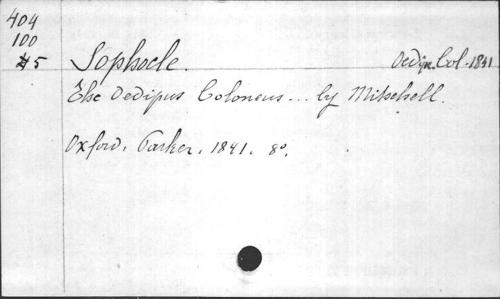 404
100
#5
Sophocle. Oedip. Col. 1841
The Oedipus Coloneus ... by Mitchell.
Oxford, Parker, 1841. 8º.